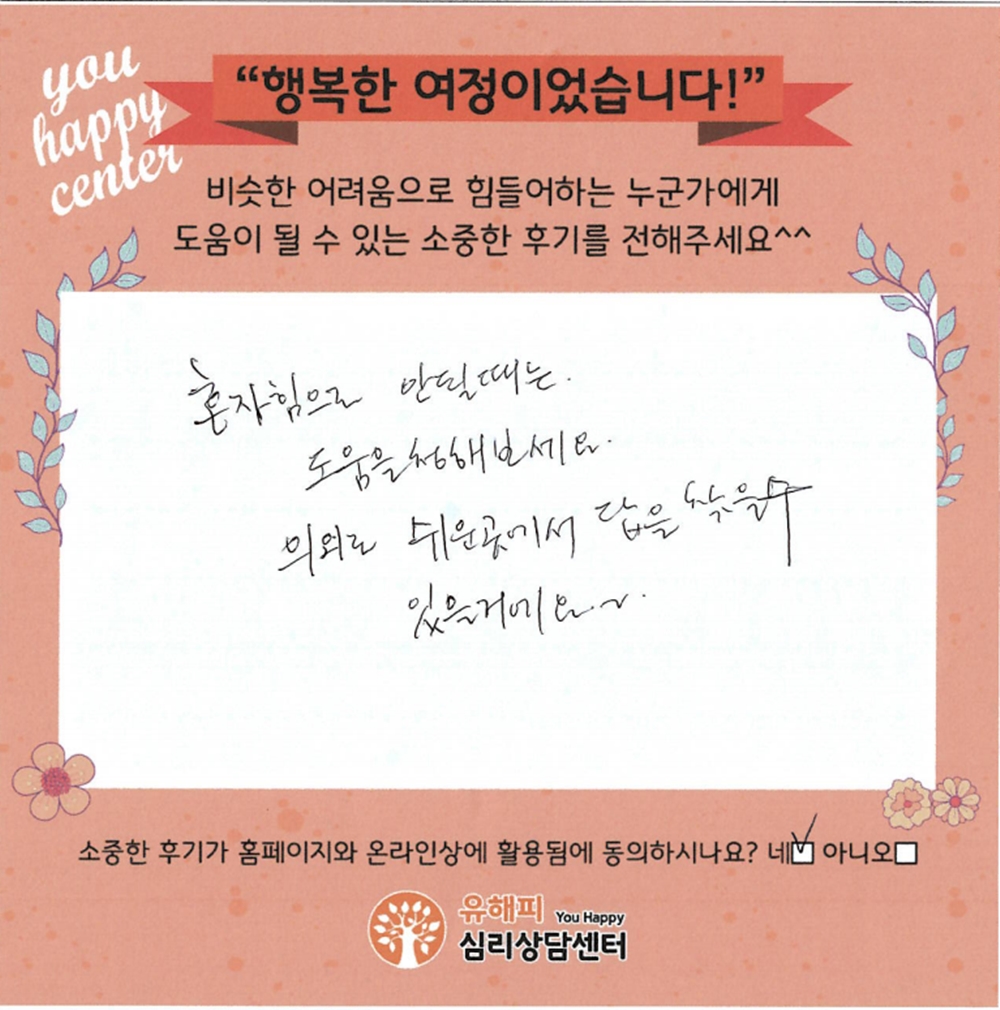 you
happy
center
“행복한 여정이었습니다!”
비슷한 어려움으로 힘들어하는 누군가에게
도움이 될 수 있는 소중한 후기를 전해주세요^^
혼자힘으로 안될때는.
도움을청해보세요.
의외로 쉬운곳에서 답을 찾을수
있을거에요~.
소중한 후기가 홈페이지와 온라인상에 활용됨에 동의하시나요? 네☑ 아니오☐
유해피 You Happy
심리상담센터